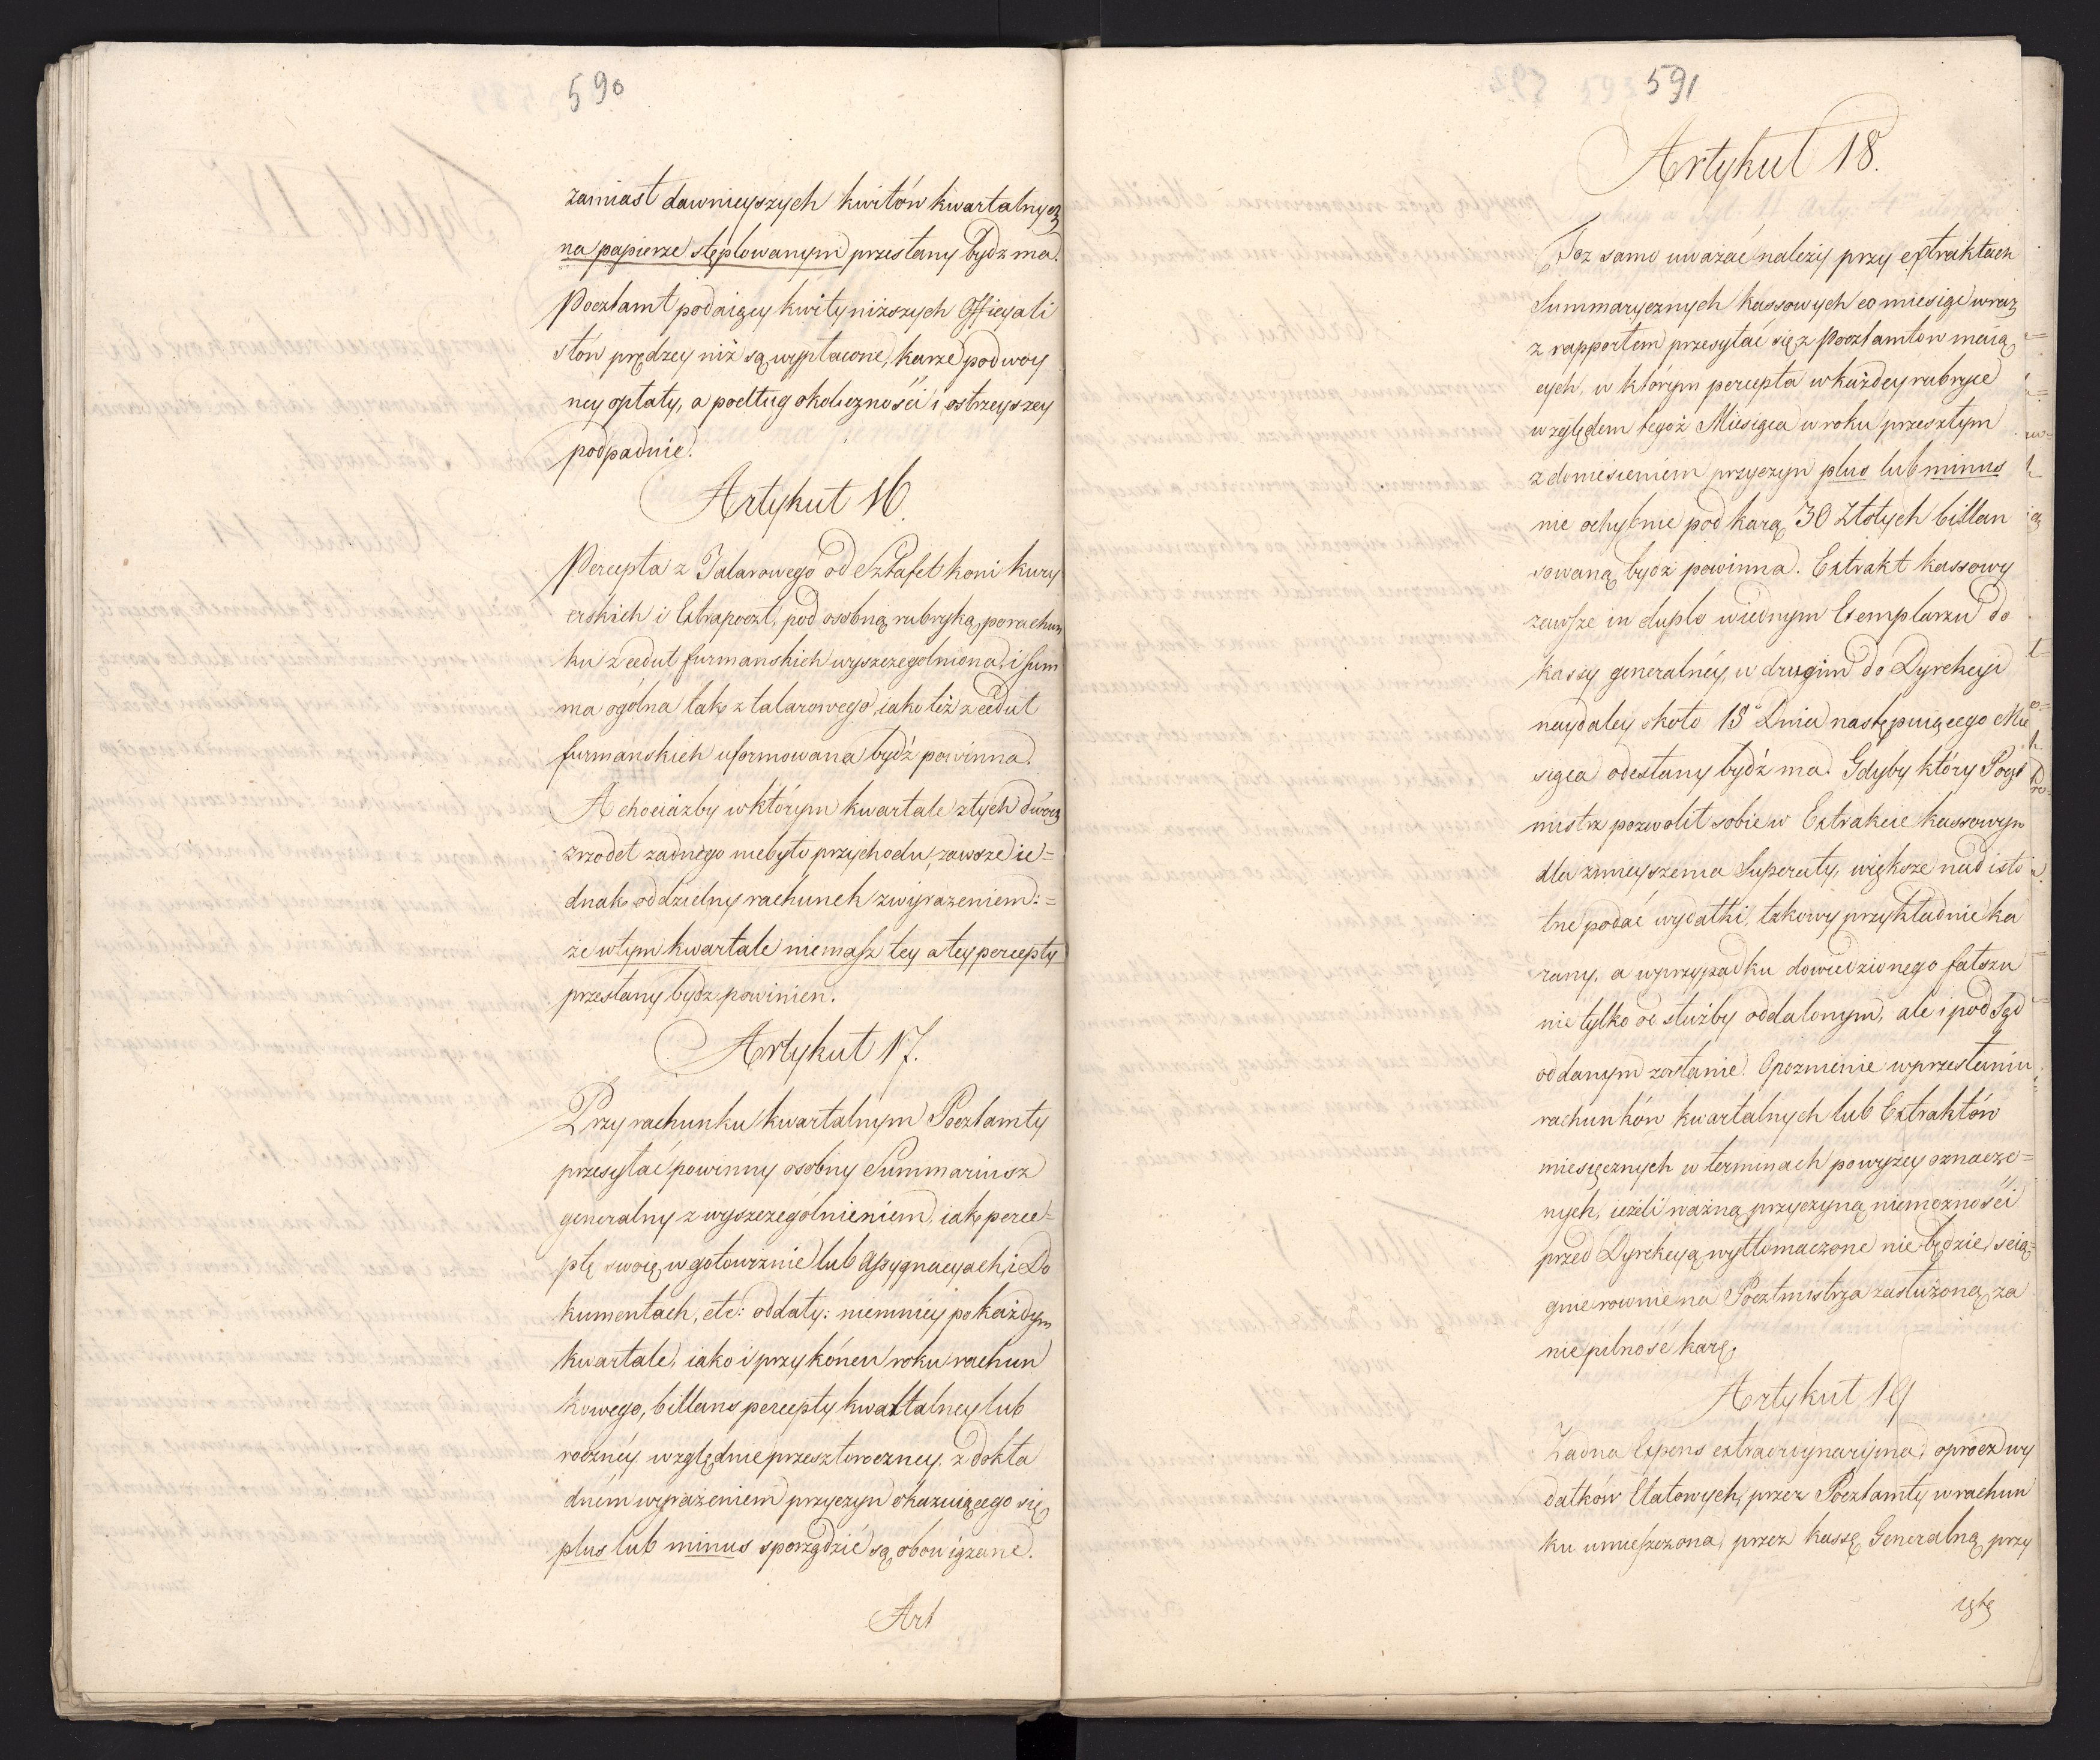 590
zamiast dawnieyszych kwitów kwartalnych
na papierze stęplowanym przesłany bydz ma.
Pocztamt podaiący kwity niższych Officyali
stów prędzey niż są wypłacone, karze podwoy
ney opłaty, a podług okoliczności i ostrzeyszey
podpadnie.
Artykuł 16.
Percepta z Talarowego od Sztafet koni kury
erskich i Extrapoczt, pod osobną rubryką, porachun
ku z ceduł furmanskich wyszczegolniona, i sum
ma ogólna tak z talarowego, iako też z ceduł
furmańskich uformowana bydź powinna.
A chociażby w którym kwartale z tych dwóch
zrzodeł żadnego niebyło przychodu, zawsze ie=
dnak oddzielny rachunek z wyrażeniem:=
że w tym kwartale niemasz tey a tey percepty
przesłany bydz powinien.
Artykuł 17.
Przy rachunku kwartalnym Pocztamty
przesyłać powinny osobny Summariusz
generalny z wyszczególnieniem, iak perce=
ptę swoię w gotowiznie lub Assygnacyach, i Do
kumentach, etc: oddały: niemniey po każdym
kwartale, iako i przy końcu roku rachun
kowego, billans percepty kwartalney lub
roczney względnie przeszłoroczney z dokła
dném wyrażeniem przyczyn okazuiącego się
plus lub minus sporządzić są obowiązane.
Art
591
Artykuł 18.
Toż samo uważać należy przy extraktach
Summarycznych kassowych co miesiąc wraz
z rapportem przesyłać się z Pocztamtow maią
cych, w którym percepta w każdey rubryce
względem tegoż Miesiąca w roku przeszłym
z doniesieniem przyczyn plus lub minus
nie ochybnie pod karą 30 Złotych billan
sowaną bydz powinna. Extrakt kassowy
zawsze in duplo w iednym Exemplarzu do
kassy generalnéy, w drugim do Dyrekcyi
naydaley około 15º Dnia następuiącego Mie
siąca odesłany bydź ma. Gdyby który Poczt
mistrz pozwolił sobie w Extrakcie kassowym
dla zmieyszenia Superaty, większe nad isto
tne podać wydatki, takowy przykładnie ka
rany, a w przypadku dowiedzionego fałszu
nie tylko od służby oddalonym, ale i pod Sąd
oddanym zostanie. Opoznienie w przesłaniu
rachunków kwartalnych lub Extraktów
miesięcznych w terminach powyżey oznaczo=
nych, ieżeli ważną przyczyną niemożności
przed Dyrekcyą wytłomaczone nie będzie, ścią=
gnie rownie na Pocztmistrza zasłużoną za
niepilność karę.
Artykuł 19
Żadna Expens extraordynaryina, oprócz wy
datków Etatowych, przez Pocztamty w rachun
ku umieszczona, przez kassę Generalną przy
iętą